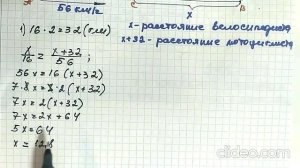 56 км/ч
x
1) 16 · 2 = 32 (км)
x - расстояние велосипедиста
x+32 - расстояние мотоциклиста
x/16 = (x+32)/56 ;
56x = 16(x+32)
7·8x = 8·2(x+32)
7x = 2(x+32)
7x = 2x + 64
5x = 64
x = 12,8
clideo.com